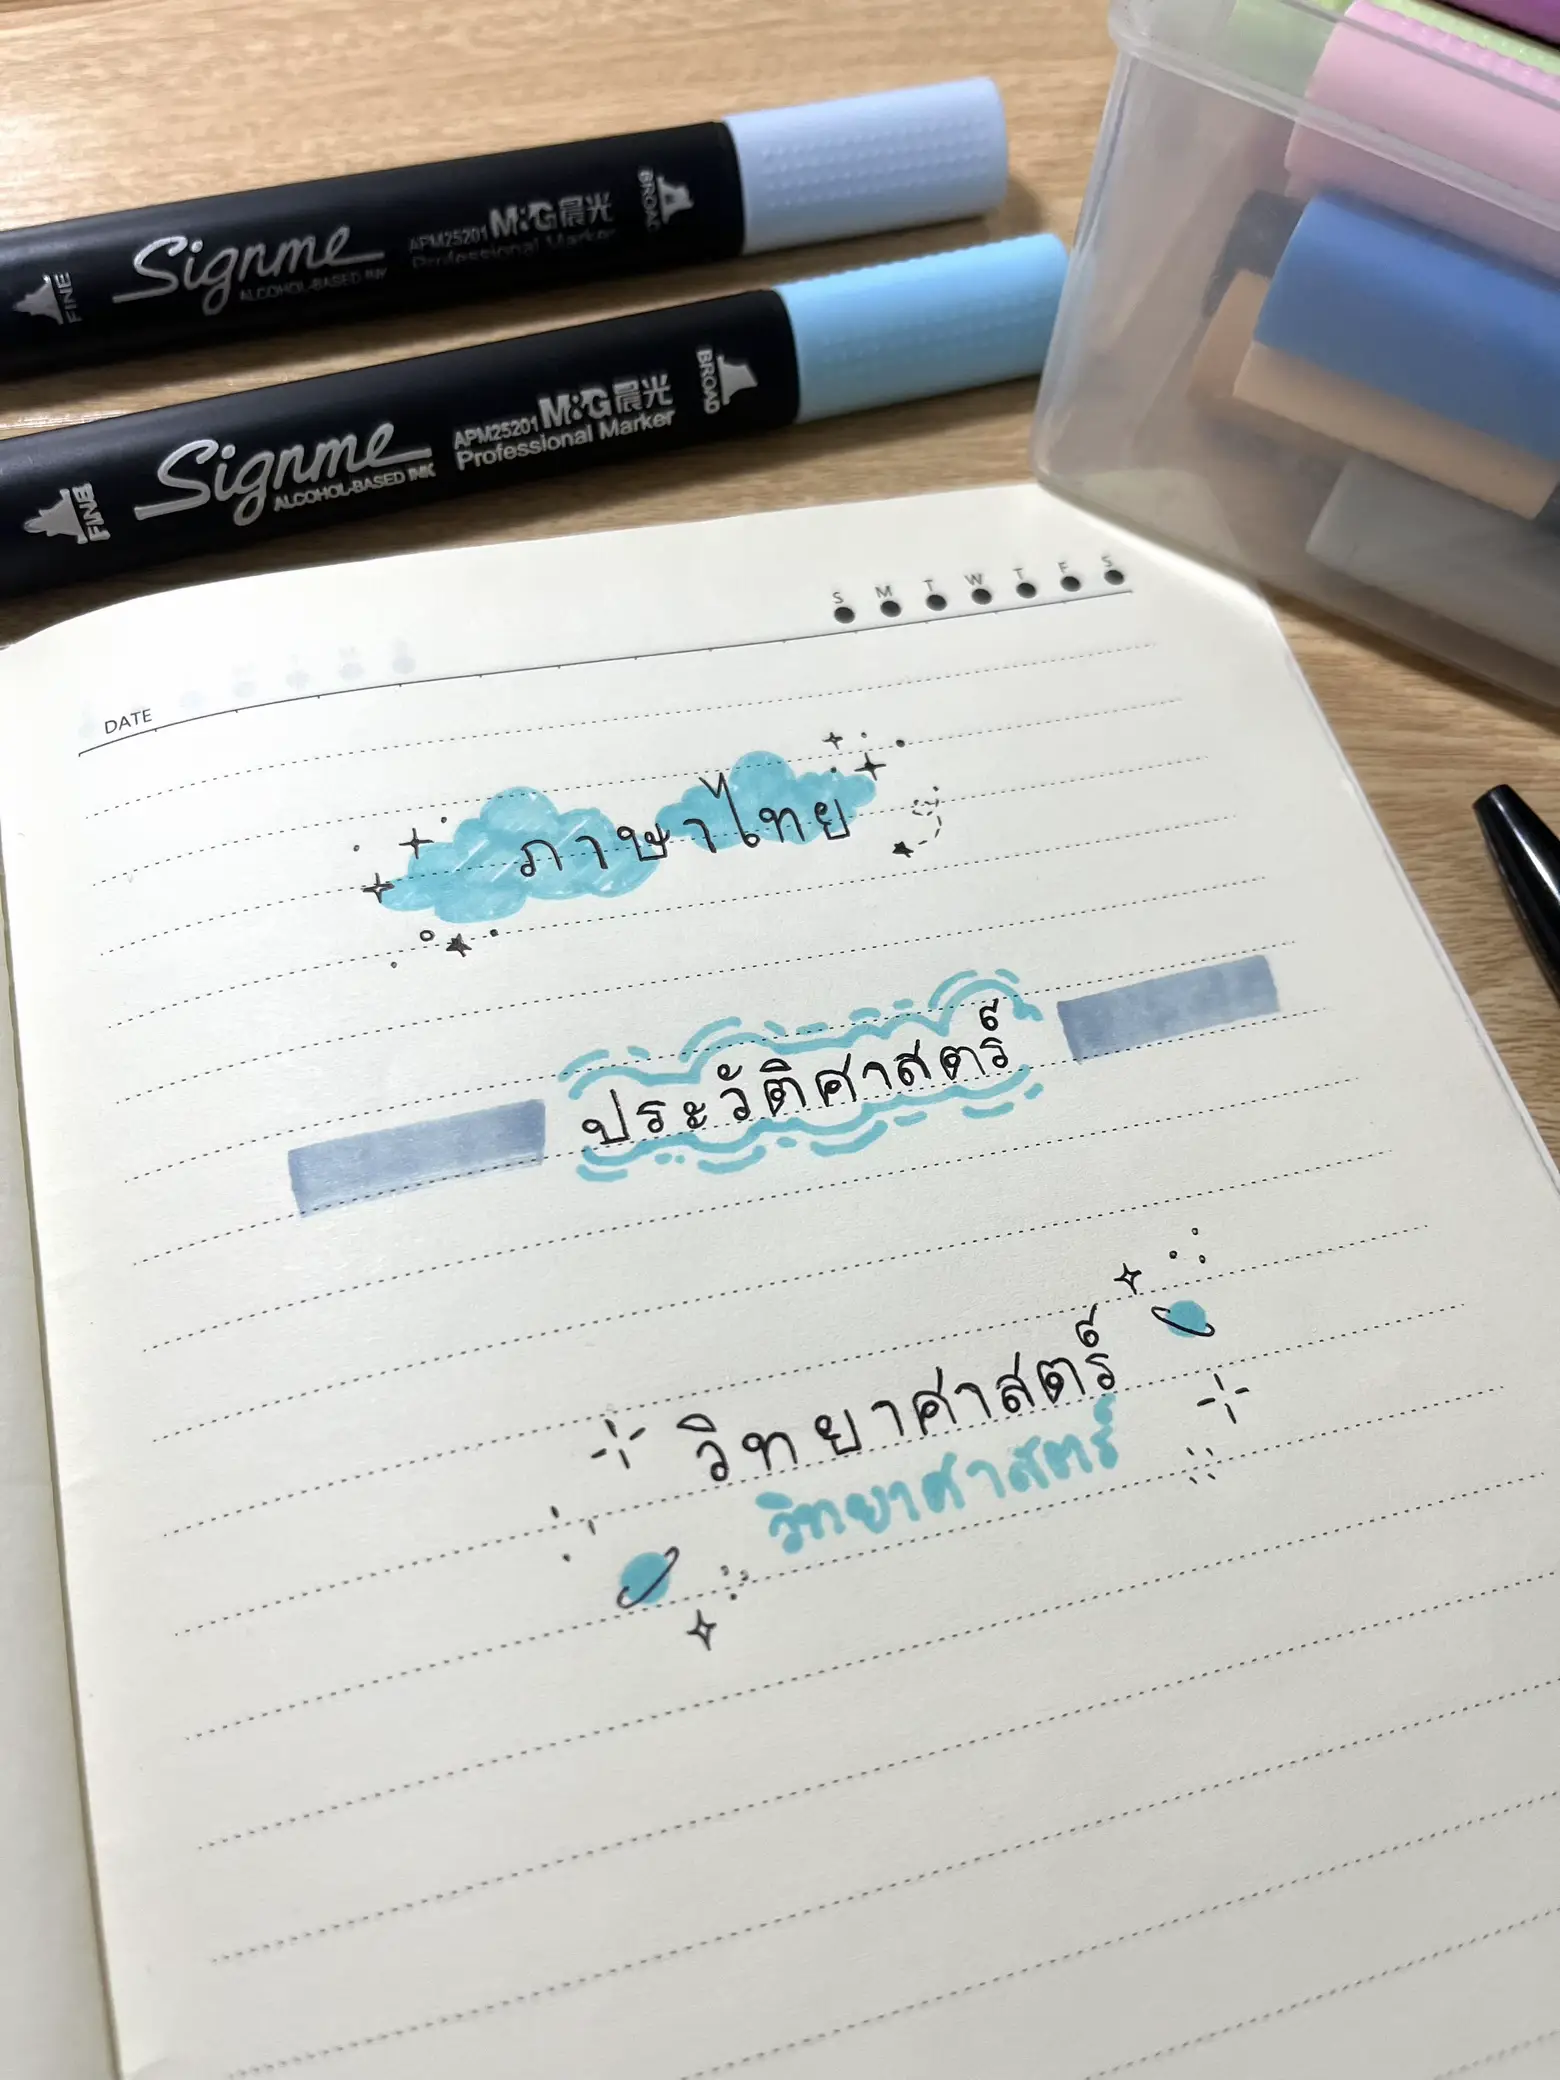 Signme
ALCOHOL-BASED INK
APM25201 M&G晨光
Professional Marker
FINE
BROAD
Signme
ALCOHOL-BASED INK
APM25201 M&G晨光
Professional Marker
FINE
BROAD
S M T W T F S
DATE
ภาษาไทย
ประวัติศาสตร์
วิทยาศาสตร์
วิทยาศาสตร์